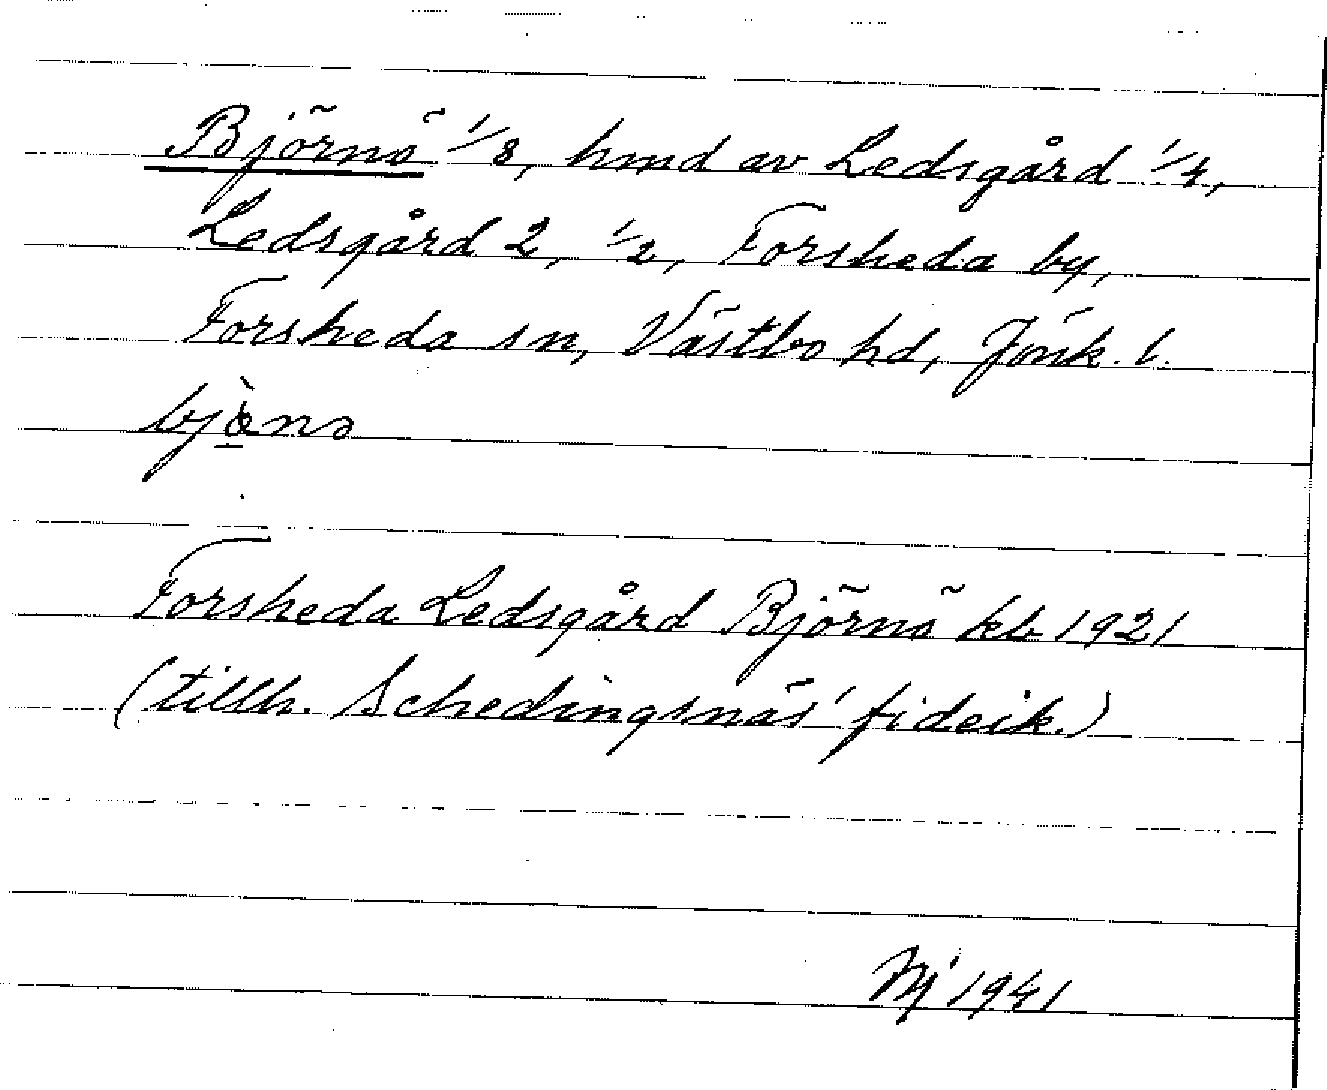 Björnö 1/8, hmd av Ledsgård 1/4,
Ledsgård 2, 1/2, Forsheda by,
Forsheda sn, Västbo hd, Jönk. l.
Forsheda Ledsgård Björnö kb 1921
(tillh. Schedingsnäs' fideik.)
1941